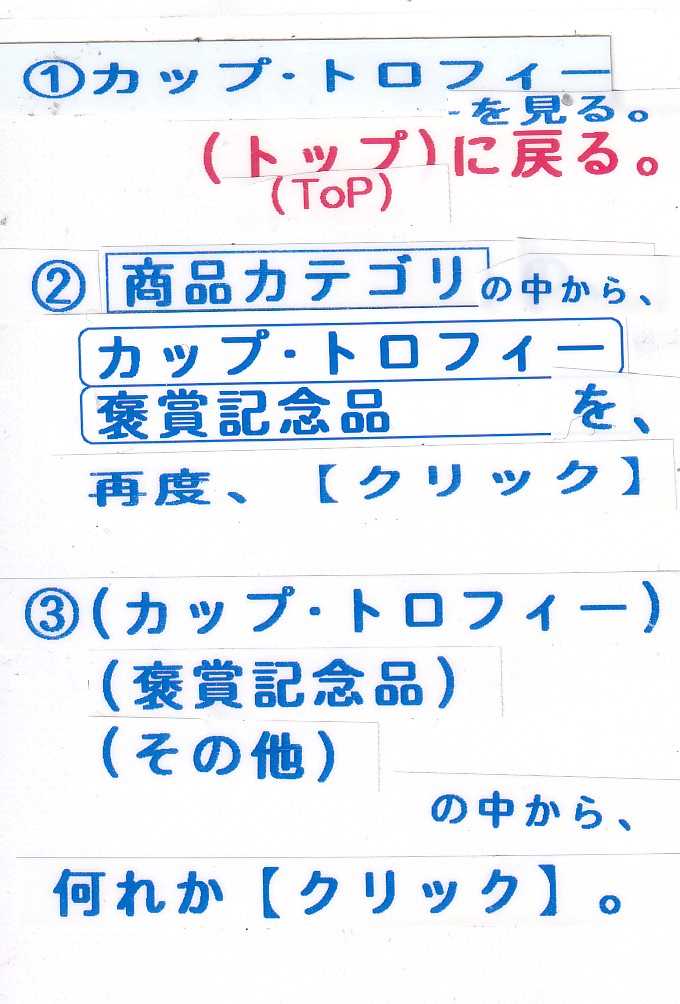 ①カップ・トロフィー
を見る。
(トップ)に戻る。
(ToP)
② 商品カテゴリ の中から、
カップ・トロフィー
褒賞記念品 を、
再度、【クリック】
③(カップ・トロフィー)
(褒賞記念品)
(その他)
の中から、
何れか【クリック】。